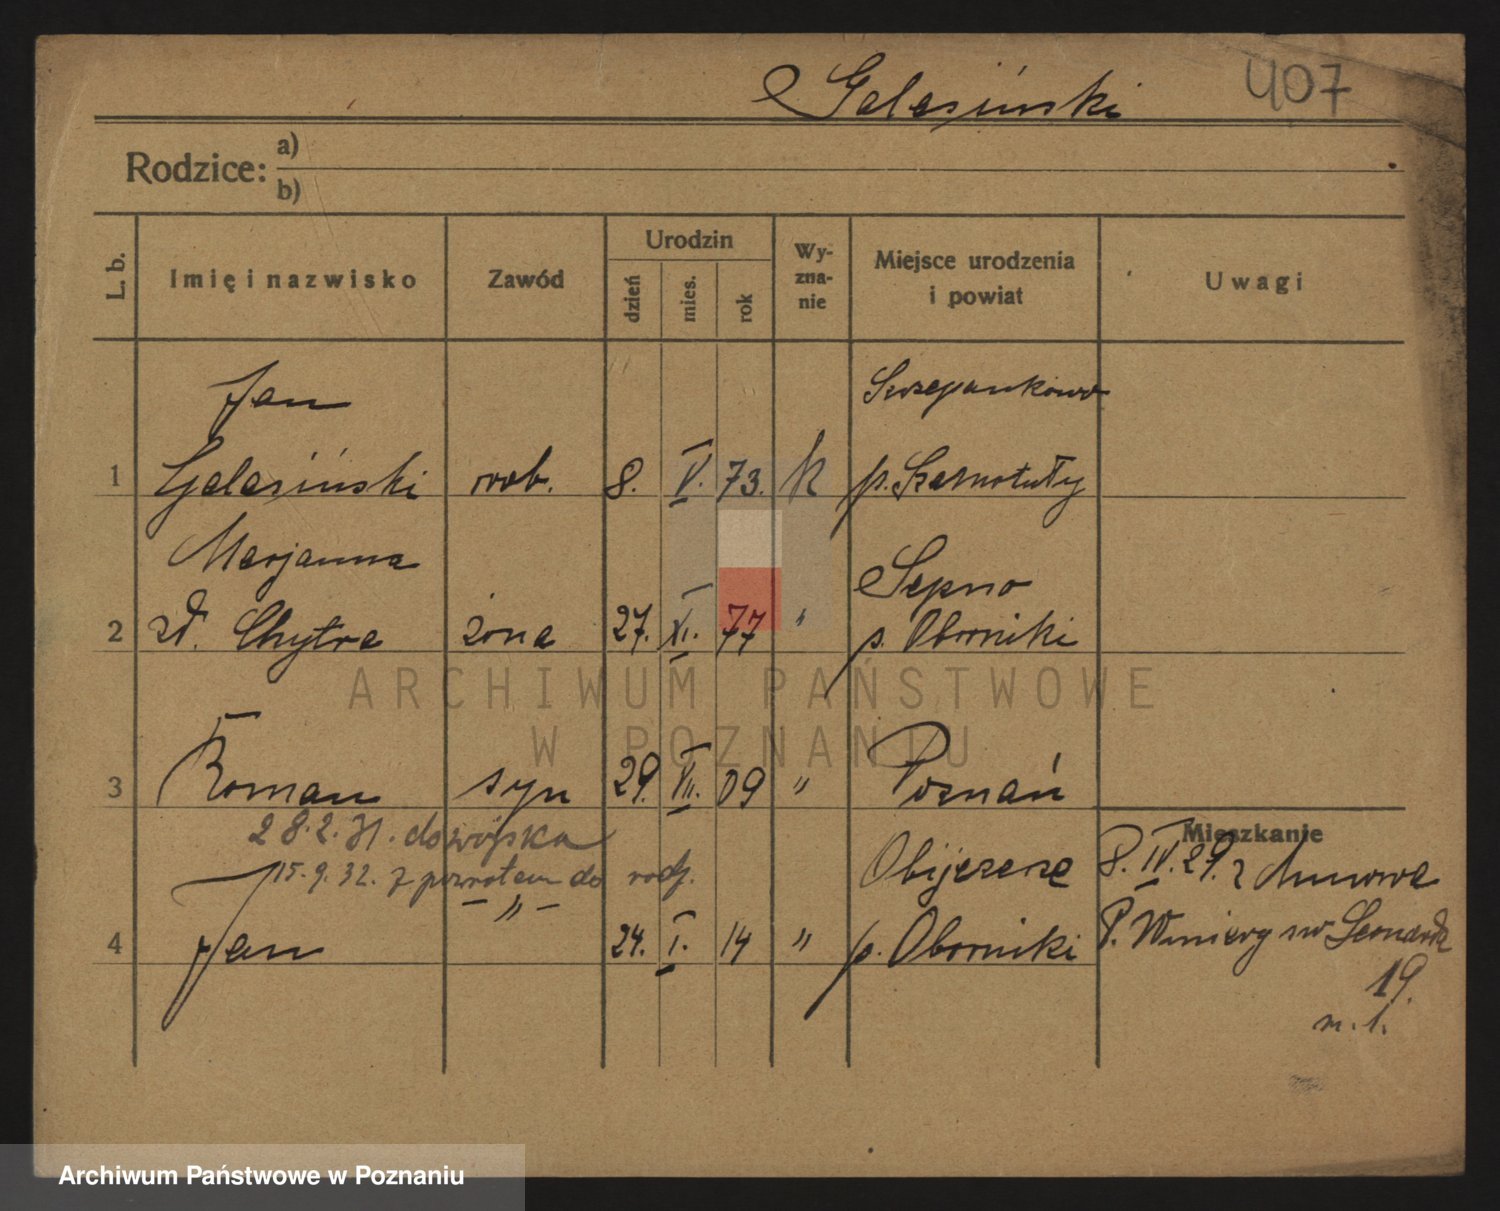 Galasiński
407
Rodzice: a)
b)
L. b.
Imię i nazwisko
Zawód
Urodzin
dzień
mies.
rok
Wy-
zna-
nie
Miejsce urodzenia
i powiat
Uwagi
Jan
Szczepankowo
1 Galasiński rob. 8. V. 73. k p. Szamotuły
Marjanna
Sepno
2 zd. Chytra żona 27. XI. 77 " p. Oborniki
3 Roman syn 29. VII. 09 " Poznań
28.2.31. do wojska
Mieszkanie
15.9.32. z powrotem do rodz.
Objezerze
8. IV. 29. z
— " —
4 Jan 24. I. 14 " p. Oborniki
P. Winiary św Leonarda
19.
m. 1.
ARCHIWUM PAŃSTWOWE
W POZNANIU
Archiwum Państwowe w Poznaniu